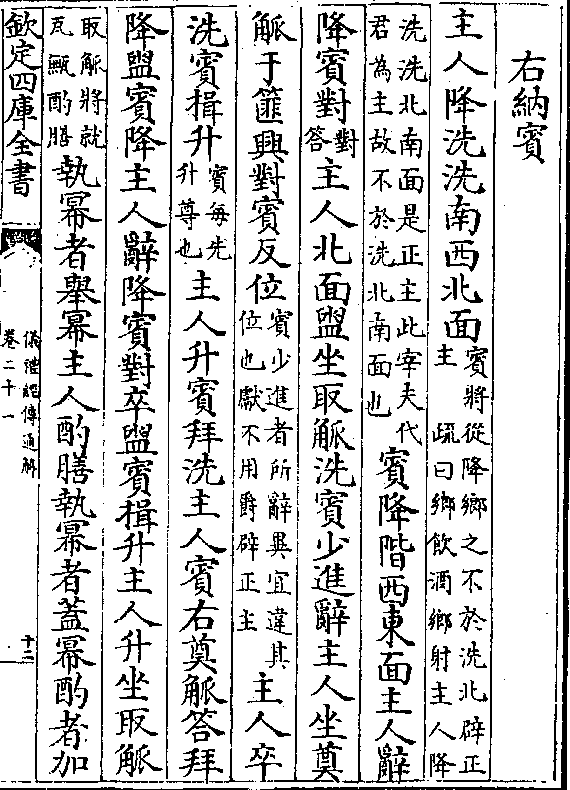 右納賓
主人降洗洗南西北面賓將從降鄉之不於洗北辟正
主　疏曰鄉飲酒鄉射主人降
洗洗北南面是正主此宰夫代
君為主故不於洗北南面也賓降階西東面主人辭
降賓對對
答主人北面盥坐取觚洗賓少進辭主人坐奠
觚于篚興對賓反位賓少進者所辭異宜違其
位也獻不用爵辟正主主人卒
洗賓揖升賓每先
升尊也主人升賓拜洗主人賓右奠觚答拜
降盥賓降主人辭降賓對卒盥賓揖升主人升坐取觚
取觚將就
瓦甒酌膳執冪者舉冪主人酌膳執冪者蓋冪酌者加
欽定四庫全書
儀禮經傳通解
卷二十一
十二